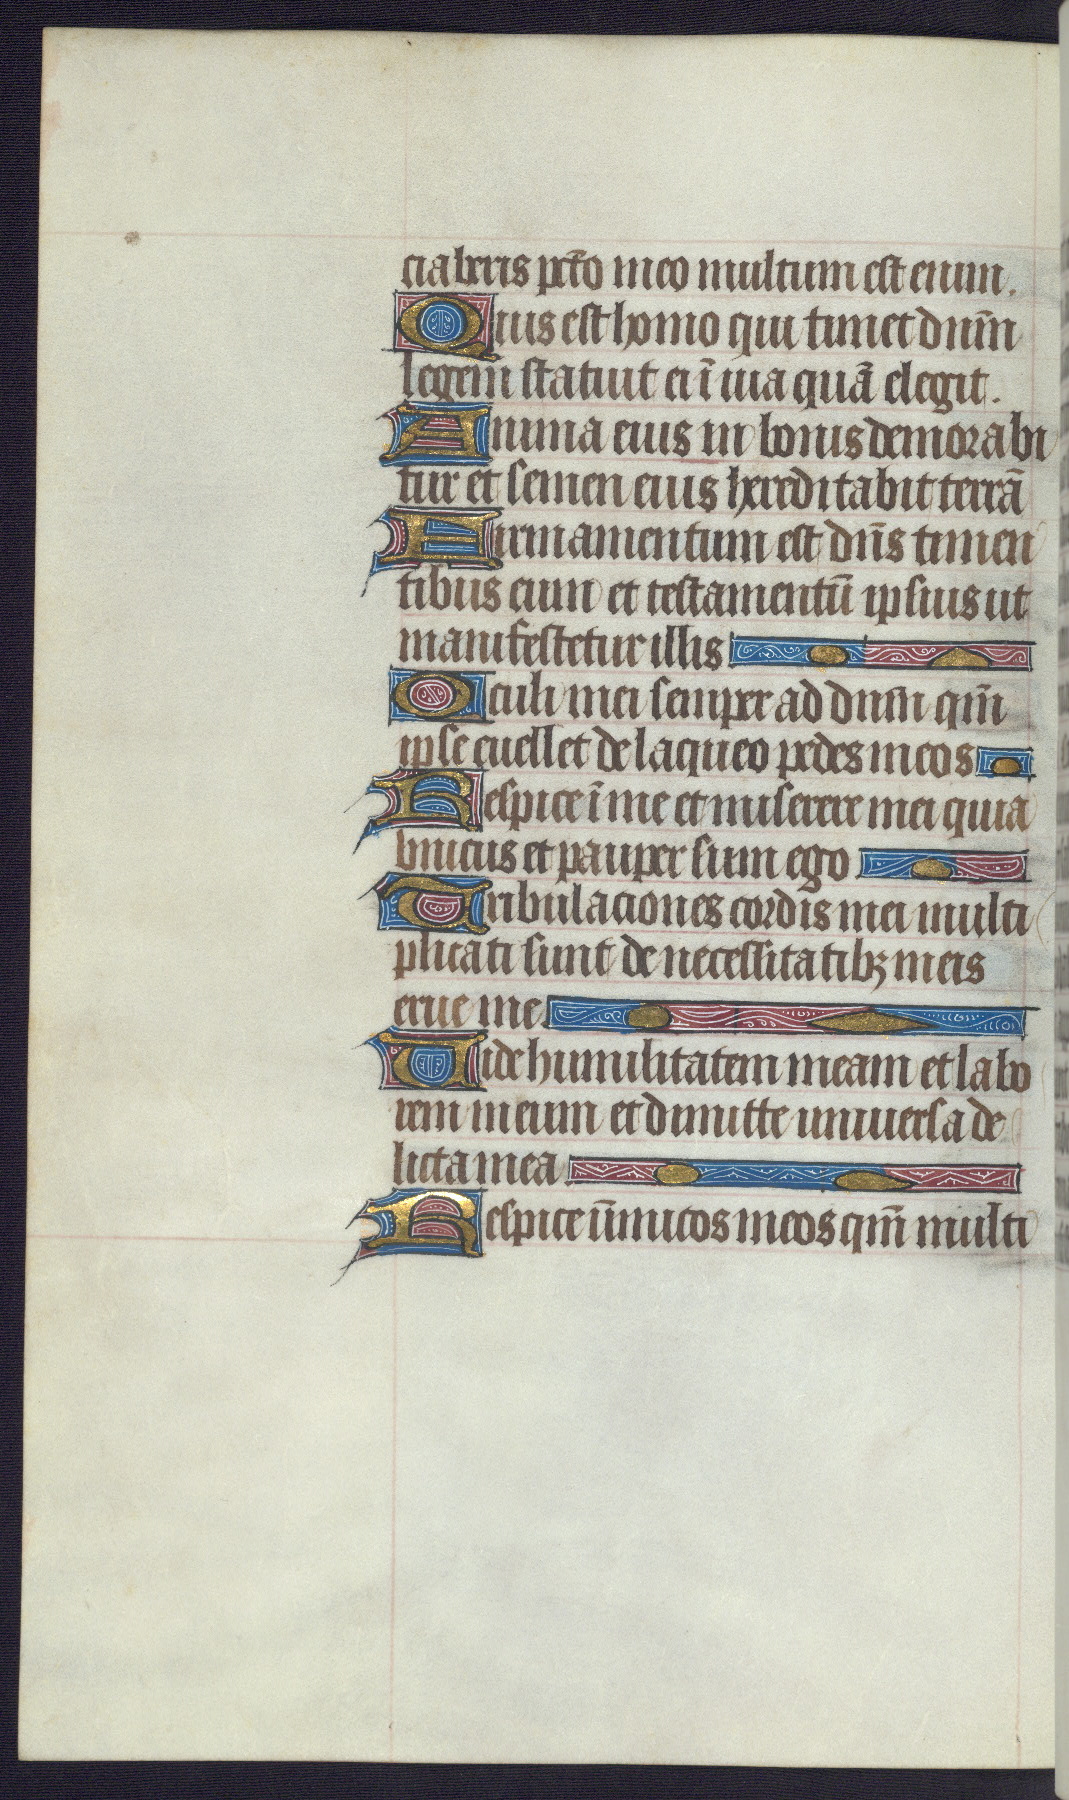 ciaberis pctō meo multum est enim.
Quis est homo qui timet dnm̄
legem statuit ei ī uia quā elegit.
Anima eius in bonis demorabi
tur et semen eius hereditabit terrā
Firmamentum est dn̄s timen
tibus eum et testamentū ipsius ut
manifestetur illis
Oculi mei semper ad dnm̄ qm̄
ipse euellet de laqueo pedes meos
Respice ī me et miserere mei quia
vnicus et pauper sum ego
Tribulaciones cordis mei multi
plicati sunt de necessitatibꝫ meis
erue me.
Vide humilitatem meam et labo
rem meum et dimitte uniuersa de
licta mea.
Respice īnimicos meos qm̄ multi